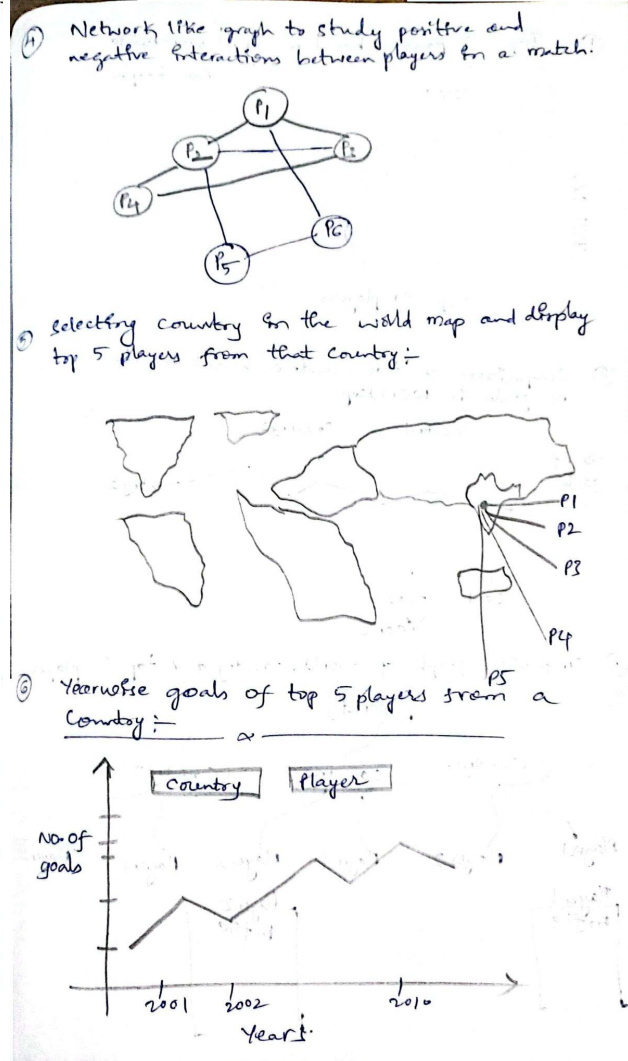 ④ Network like graph to study positive and
negative interactions between players in a match.
P1
P2
P3
P4
P6
P5
⑤ selecting country in the world map and display
top 5 players from that country :-
P1
P2
P3
P4
P5
⑥ Yearwise goals of top 5 players from a
Country :-
Country Player
No. of
goals
2001 2002 2010
Years.